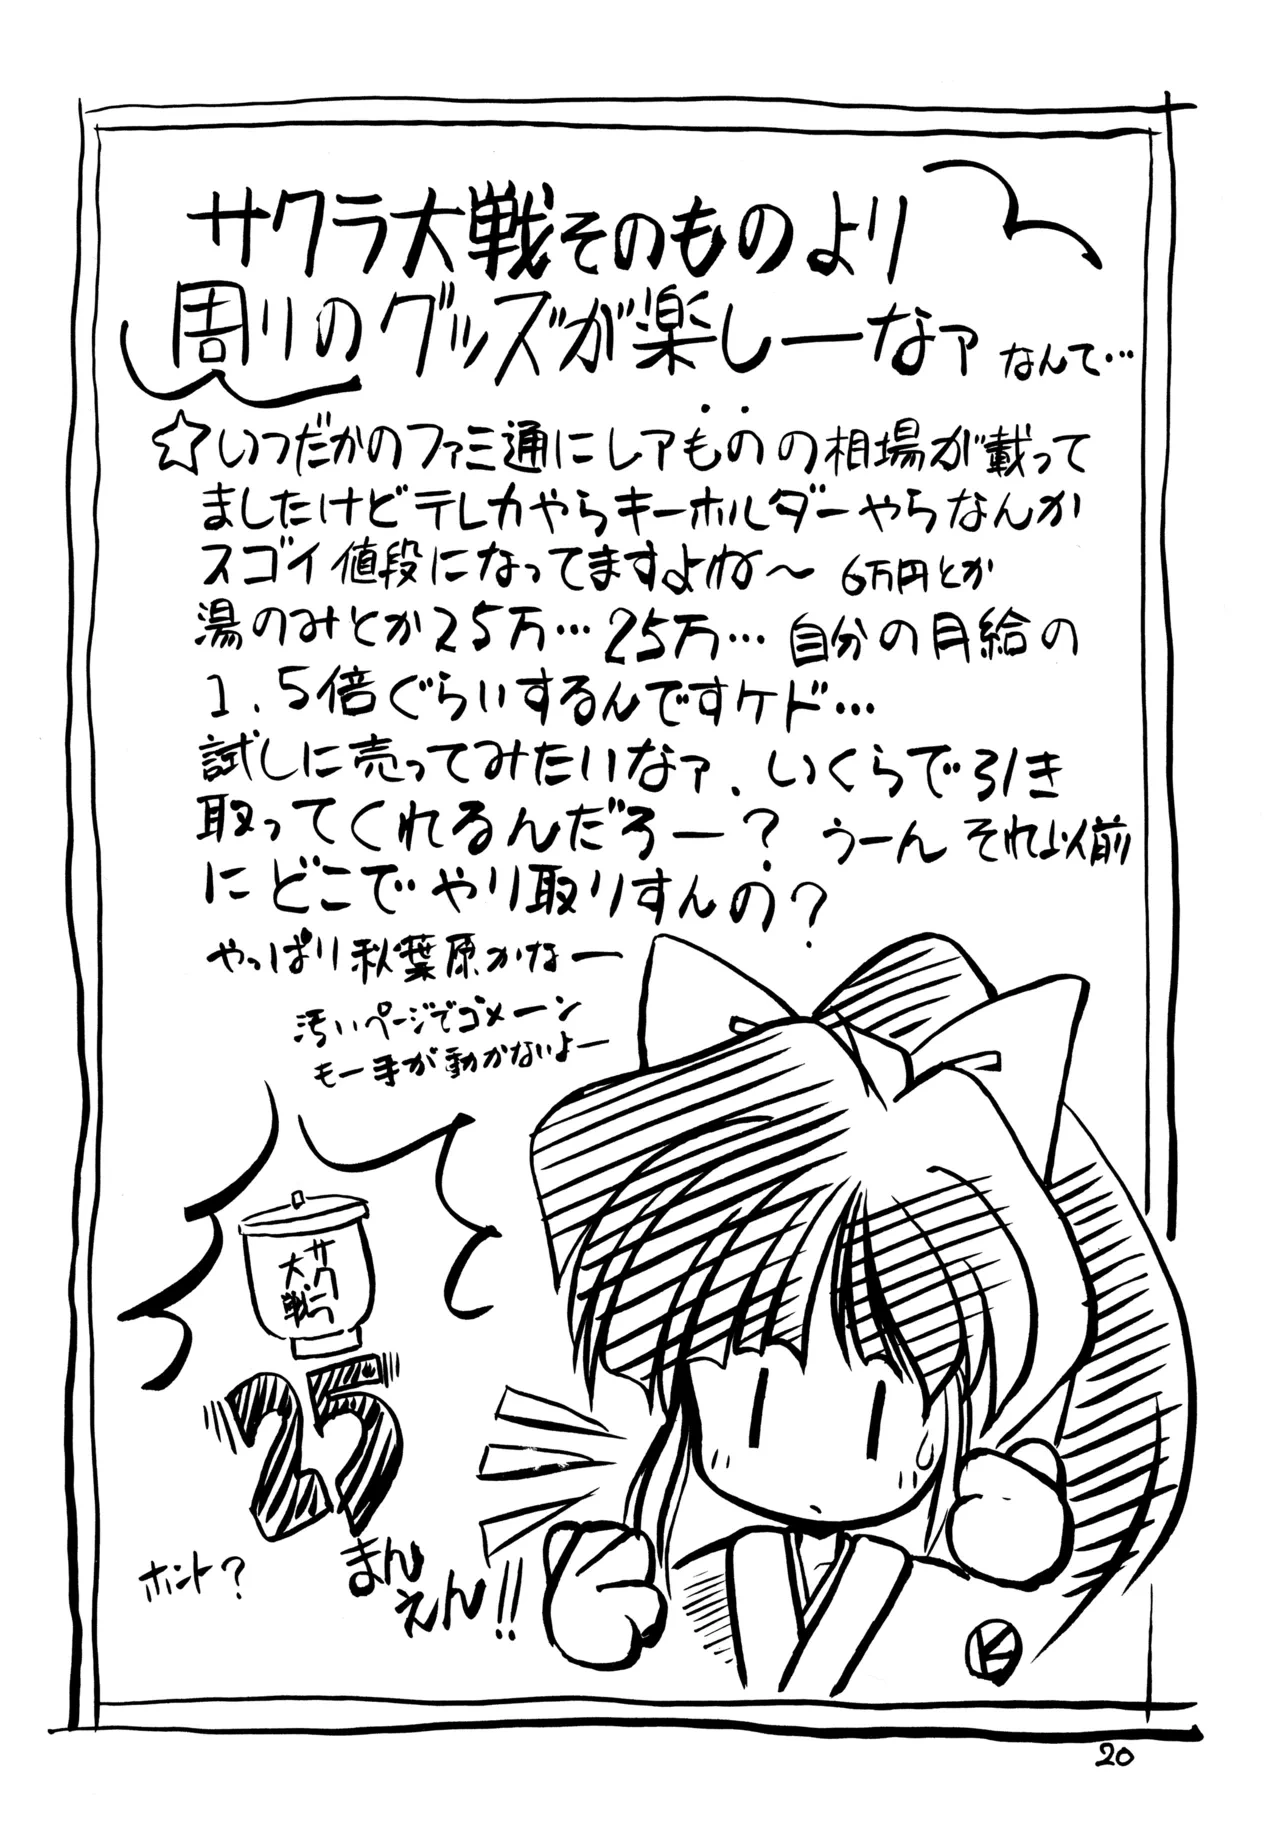 サクラ大戦そのものより
周りのグッズが楽しーなァ なんて…
☆いつだかのファミ通にレアものの相場が載って
ましたけどテレカやらキーホルダーやらなんか
スゴイ値段になってますよね〜 6万円とか
湯のみとか25万…25万… 自分の月給の
1.5倍ぐらいするんですケド…
試しに売ってみたいなァ. いくらで引き
取ってくれるんだろー? うーん それ以前
にどこでやり取りすんの?
やっぱり秋葉原かなー
汚いページでゴメーン
モー手が動かないよー
サクラ
大戦
25
まん
えん!!
ホント?
K
20